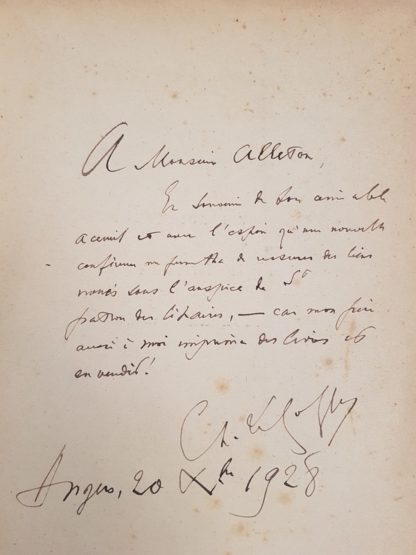 A Monsieur Alleton,
En souvenir de son aimable
accueil et avec l'espoir qu'une nouvelle
conférence me permettra de resserrer des liens
noués sous l'auspice du St
patron des libraires, — car mon père
aussi à moi imprima des livres et
en vendit!
Ch. Le Goffic
Angers, 20 Xbre 1928